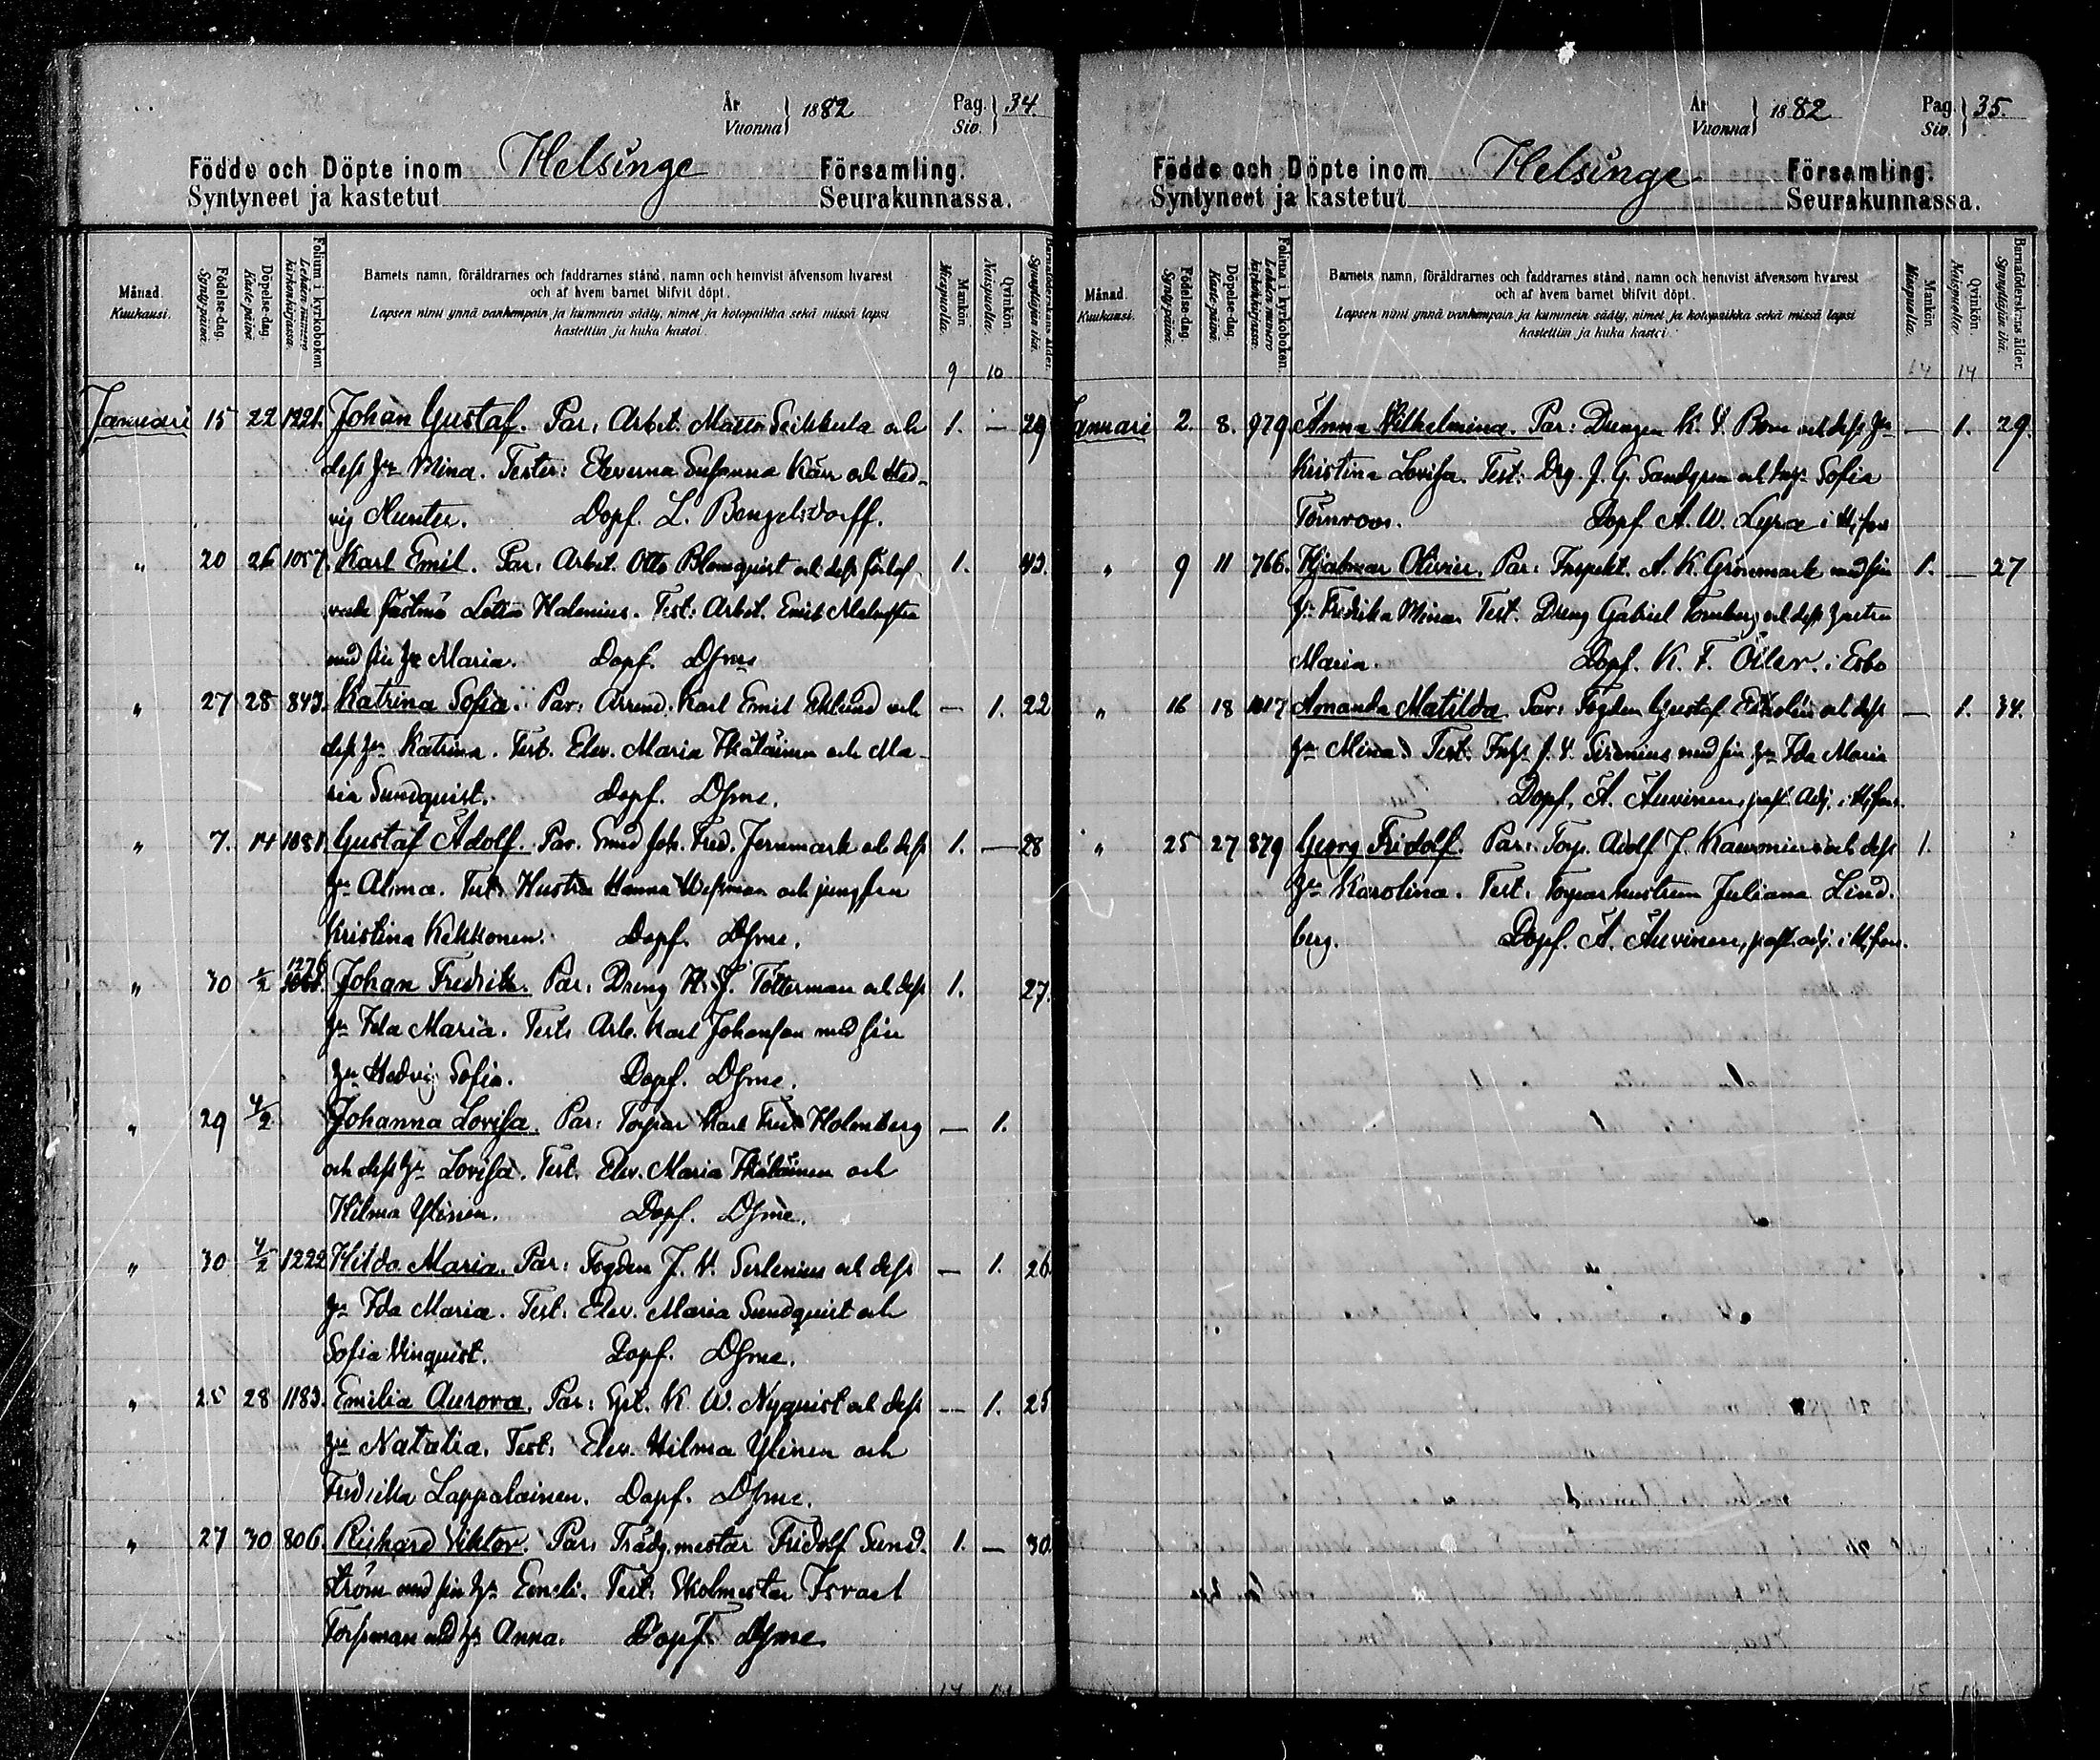 År
Vuonna } 1882
Pag.
Siv. } 34.
Födde och Döpte inom Helsinge Församling.
Syntyneet ja kastetut Seurakunnassa.
Månad.
Kuukausi.
Födelse-dag.
Syntypäivä.
Döpelse-dag.
Kastepäivä.
Folium i kyrkoboken.
Lehden numero kirkonkirjassa.
Barnets namn, föräldrarnes och faddrarnes stånd, namn och hemvist äfvensom hvarest
och af hvem barnet blifvit döpt.
Lapsen nimi ynnä vanhempain ja kummein sääty, nimet ja kotopaikka sekä missä lapsi
kastettiin ja kuka kastoi.
Mankön
Miespuolia.
Qvinkön.
Naispuolia.
Barnaföderskans ålder.
Synnyttäjän ikä.
9 10
Januari 15 22 1221. Johan Gustaf. Par. Arbet. Matts Seikkula och 1. — 29
dess hu Mina. Tester: Eleverna Susanna Kärr och Hed-
vig Hunter. Dopf. L. Bengelsdorff.
" 20 26 1057. Karl Emil. Par. Arbet. Otto Blomquist och dess förlof 1. 43.
vade fästmö Lotta Halenius. Test. Arbet. Emil
med sin hu Maria. Dopf. Dsme
" 27 28 843. Katrina Sofia. Par. Arrend. Karl Emil Eklund och — 1. 22
dess hu Katrina. Test. Elev. Maria och Ma-
ria Sundquist. Dopf. Dsme.
" 7. 14 1081. Gustaf Adolf. Par. Smed Joh. Fred. Jernmark och dess 1. — 28
hu Alma. Test. Hustru Hanna Wessman och jungfru
Kristina Kekkonen. Dopf. Dsme.
" 30 1/2 1276 Johan Fredrik. Par. Dreng H. J. Tötterman och dess 1. 27.
hu Ida Maria. Test. Arb. Karl Johansson med sin
hu Hedvig Sofia. Dopf. Dsme.
" 29 4/2 Johanna Lovisa. Par. Torpar Karl Fred. Holmberg — 1.
och dess hu Lovisa. Test. Elev. Maria och
Hilma Ylinen. Dopf. Dsme.
" 30 4/2 1222 Hilda Maria. Par. Fogden J. V. Serlenius och dess — 1. 26.
hu Ida Maria. Test. Elev. Maria Sundquist och
Sofia Vinquist. Dopf. Dsme.
" 25 28 1183. Emilia Aurora. Par. K. W. Nyquist och dess — 1. 25
hu Natalia. Test. Elev. Hilma Ylinen och
Fredrika Lappalainen. Dopf. Dsme.
" 27 30 806. Richard Viktor. Par. Trädg.mestar Fridolf Sund- 1. — 30.
ström med sin hu Emeli. Test. Skolmestar Israel
Forssman med hu Anna. Dopf. Dsme
År
Vuonna } 1882
Pag.
Siv. } 35.
Födde och Döpte inom Helsinge Församling.
Syntyneet ja kastetut Seurakunnassa.
Månad.
Kuukausi.
Födelse-dag.
Syntypäivä.
Döpelse-dag.
Kastepäivä.
Folium i kyrkoboken.
Lehden numero kirkonkirjassa.
Barnets namn, föräldrarnes och faddrarnes stånd, namn och hemvist äfvensom hvarest
och af hvem barnet blifvit döpt.
Lapsen nimi ynnä vanhempain ja kummein sääty, nimet ja kotopaikka sekä missä lapsi
kastettiin ja kuka kastoi.
Mankön
Miespuolia.
Qvinkön.
Naispuolia.
Barnaföderskans ålder.
Synnyttäjän ikä.
14 14
Januari 2. 8. 979. Anna Vilhelmina. Par: Drengen K. V. Bom och dess hu — 1. 29.
Kristina Lovisa. Test: Drg. J. G. Sandgren och Sofia
Törnroos. Dopf. A. W. Lyra i Hfors
" 9 11 766. Hjalmar Olivier. Par: Inspekt. A. K. Grönmark med sin 1. — 27
hu Fredrika Mina. Test. Dreng Gabriel Tornberg och dess hustru
Maria. Dopf. K. F. Öiler. i Esbo
" 16 18 1017 Amanda Matilda. Par: Fogden Gustaf Ekholm och dess — 1. 34.
hu Mina. Test: J. V. med sin hu Ida Maria
Dopf. A. Auvinen, past. adj. i Hfors.
" 25 27 879 Georg Fridolf. Par: Torp. Adolf J. Kawonius och dess 1.
hu Karolina. Test. Torparhustrun Juliana Lind-
berg. Dopf. A. Auvinen, past. adj. i Hfors.